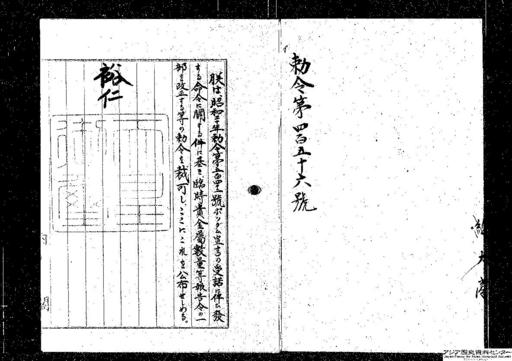 勅令第四百五十六號
朕は昭和二十年勅令第五百四十二號ポツダム宣言の受諾に伴ひ發
する命令に關する件に基き、臨時貴金屬數量等報告令の一
部を改正する等の勅令を裁可し、ここにこれを公布せしめる。
裕仁
アジア歴史資料センター